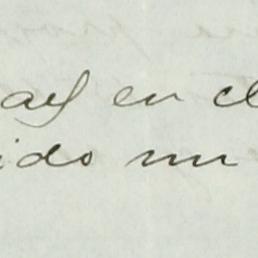 en el
ido un